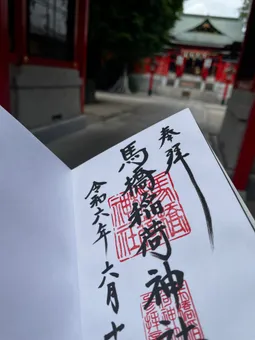 奉拝
馬橋稲荷神社
令和六年六月十